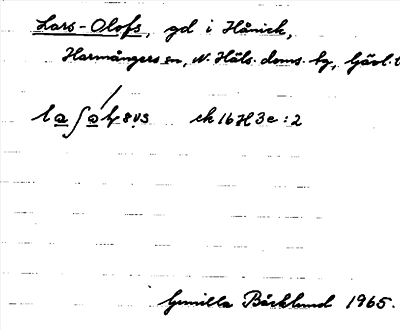 Lars-Olofs, gd i Hånick,
Harmångers sn, N. Häls. doms. bg, Gävl. l
ek 16H3e:2
Gunilla Bäcklund 1965.